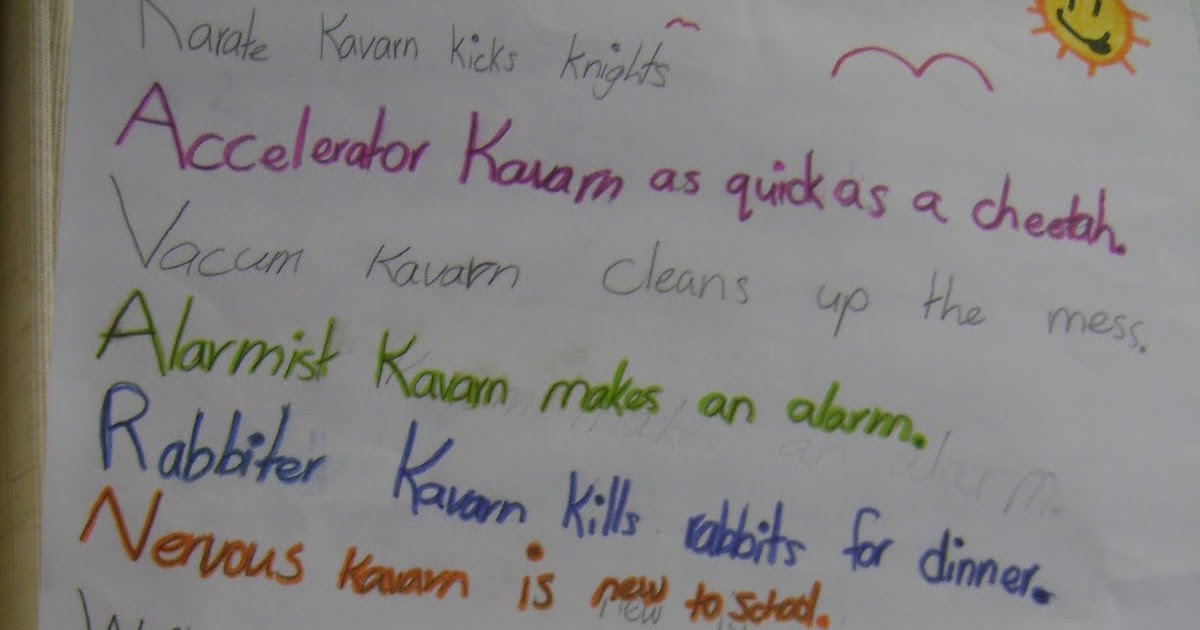 Karate Kavarn kicks knights
Accelerator Kavarn as quick as a cheetah.
Vacum Kavarn Cleans up the mess.
Alarmist Kavarn makes an alarm.
Rabbiter Kavarn kills rabbits for dinner.
Nervous Kavarn is new to school.